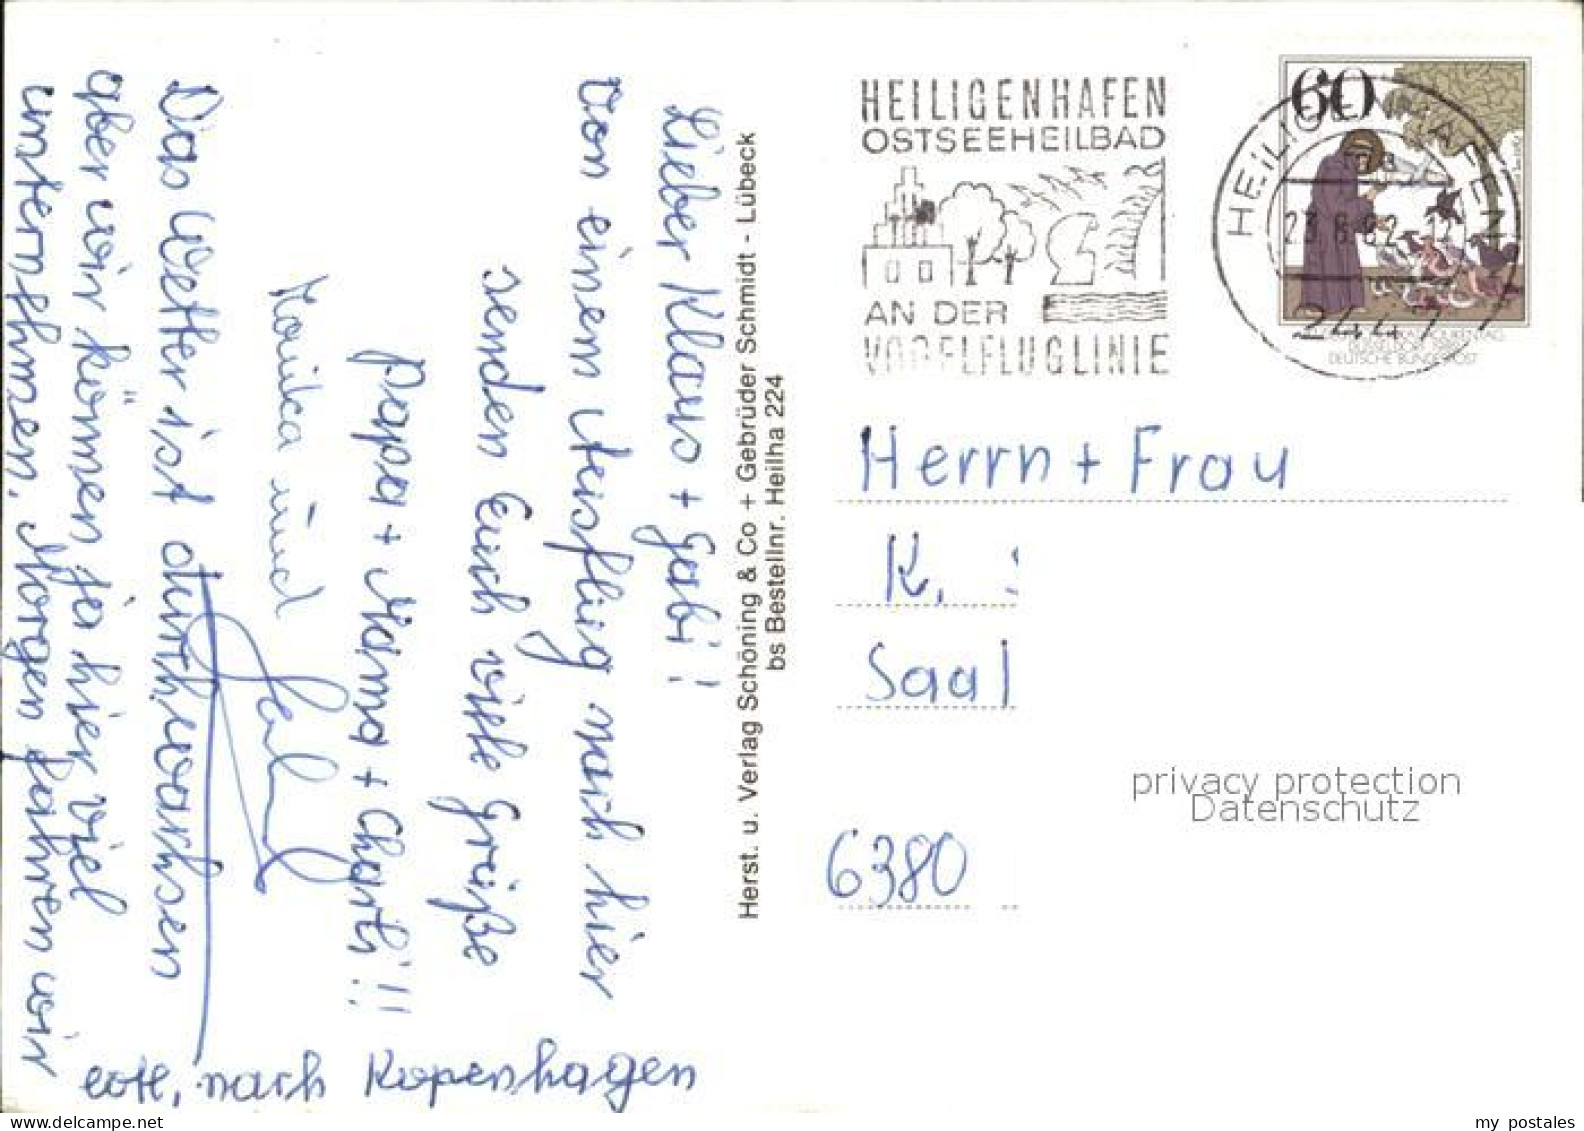 Lieber Klaus + Gabi!
Von einem Ausflug nach hier
senden Euch viele Grüße
Papa + Mama + Charti!!
Monika und
Das Wetter ist durchwachsen
aber wir können ja hier viel
unternehmen. Morgen fahren wir
evtl. nach Kopenhagen
Herst. u. Verlag Schöning & Co + Gebrüder Schmidt - Lübeck
bs Bestellnr. Heilha 224
HEILIGENHAFEN
OSTSEEHEILBAD
AN DER
VOGELFLUGLINIE
60
HEILIGENHAFEN
23.6.82
2447
DEUTSCHE BUNDESPOST
Herrn + Frau
K.
Saal
6380
privacy protection
Datenschutz
my postales